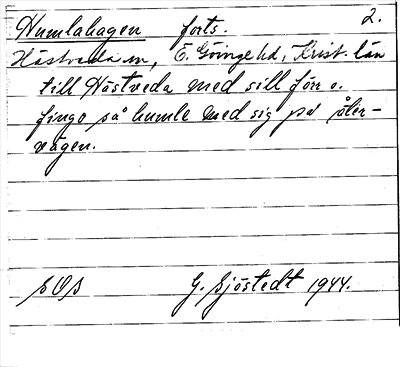 Humlahagen forts. 2.
Hästveda sn, Ö. Göinge hd, Krist. län
till Hästveda med sill förr o.
fingo så humle med sig på åter-
vägen.
G. Sjöstedt 1944.